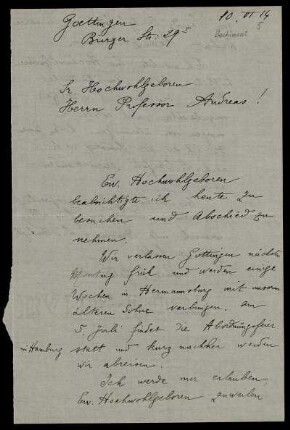 Goettingen 10. VI 14
Bürger Str. 29ᴵ
Sr Hochwohlgeboren
Herrn Professor Andreas!
Ew. Hochwohlgeboren
beabsichtigte ich heute zu
besuchen und Abschied zu
nehmen.
Wir verlassen Göttingen nächste
früh und werden einige
Wochen in Hermannsburg mit unserm
älteren Sohne verbringen. Am
5 Juli findet die Abordnungsfeier
in Hamburg statt und kurz nachher werden
wir abreisen.
Ich werde mir erlauben
Ew. Hochwohlgeboren zuweilen